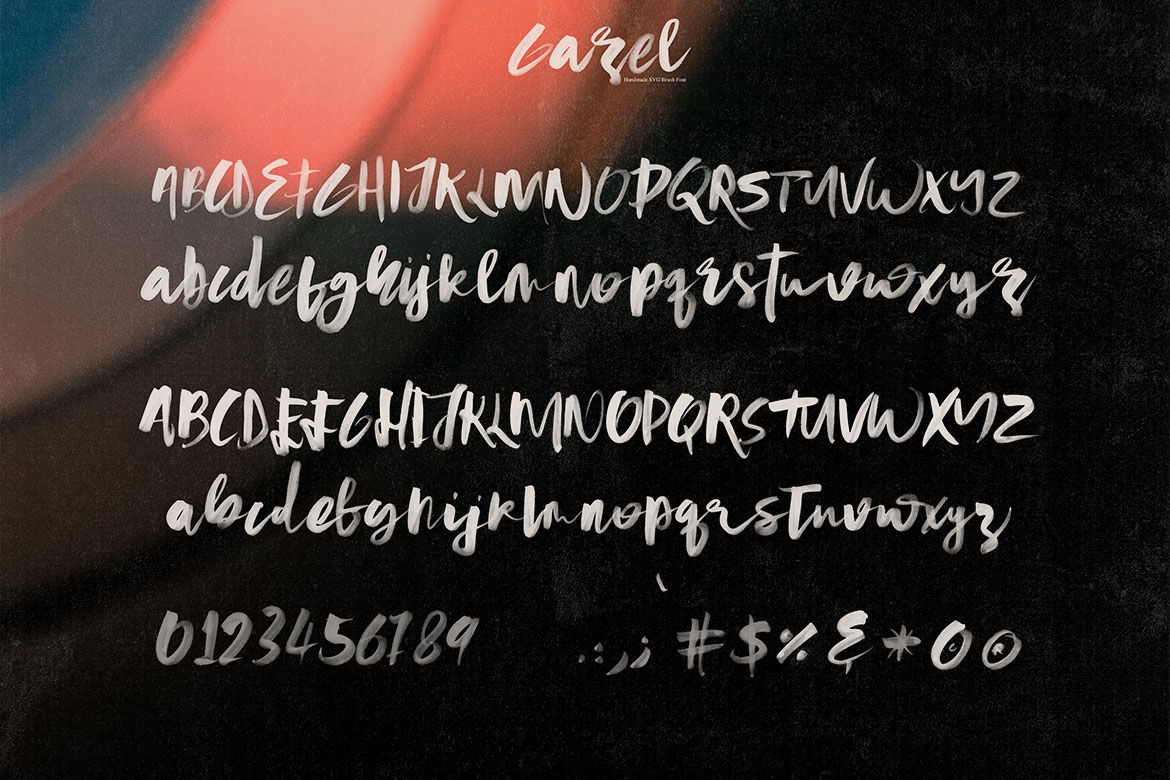 Gazel
Handmade SVG Brush Font
ABCDEFGHIJKLMNOPQRSTUVWXYZ
abcdefghijklmnopqrstuvwxyz
ABCDEFGHIJKLMNOPQRSTUVWXYZ
abcdefghijklmnopqrstuvwxyz
0123456789 .:,; ` #$%&*©®